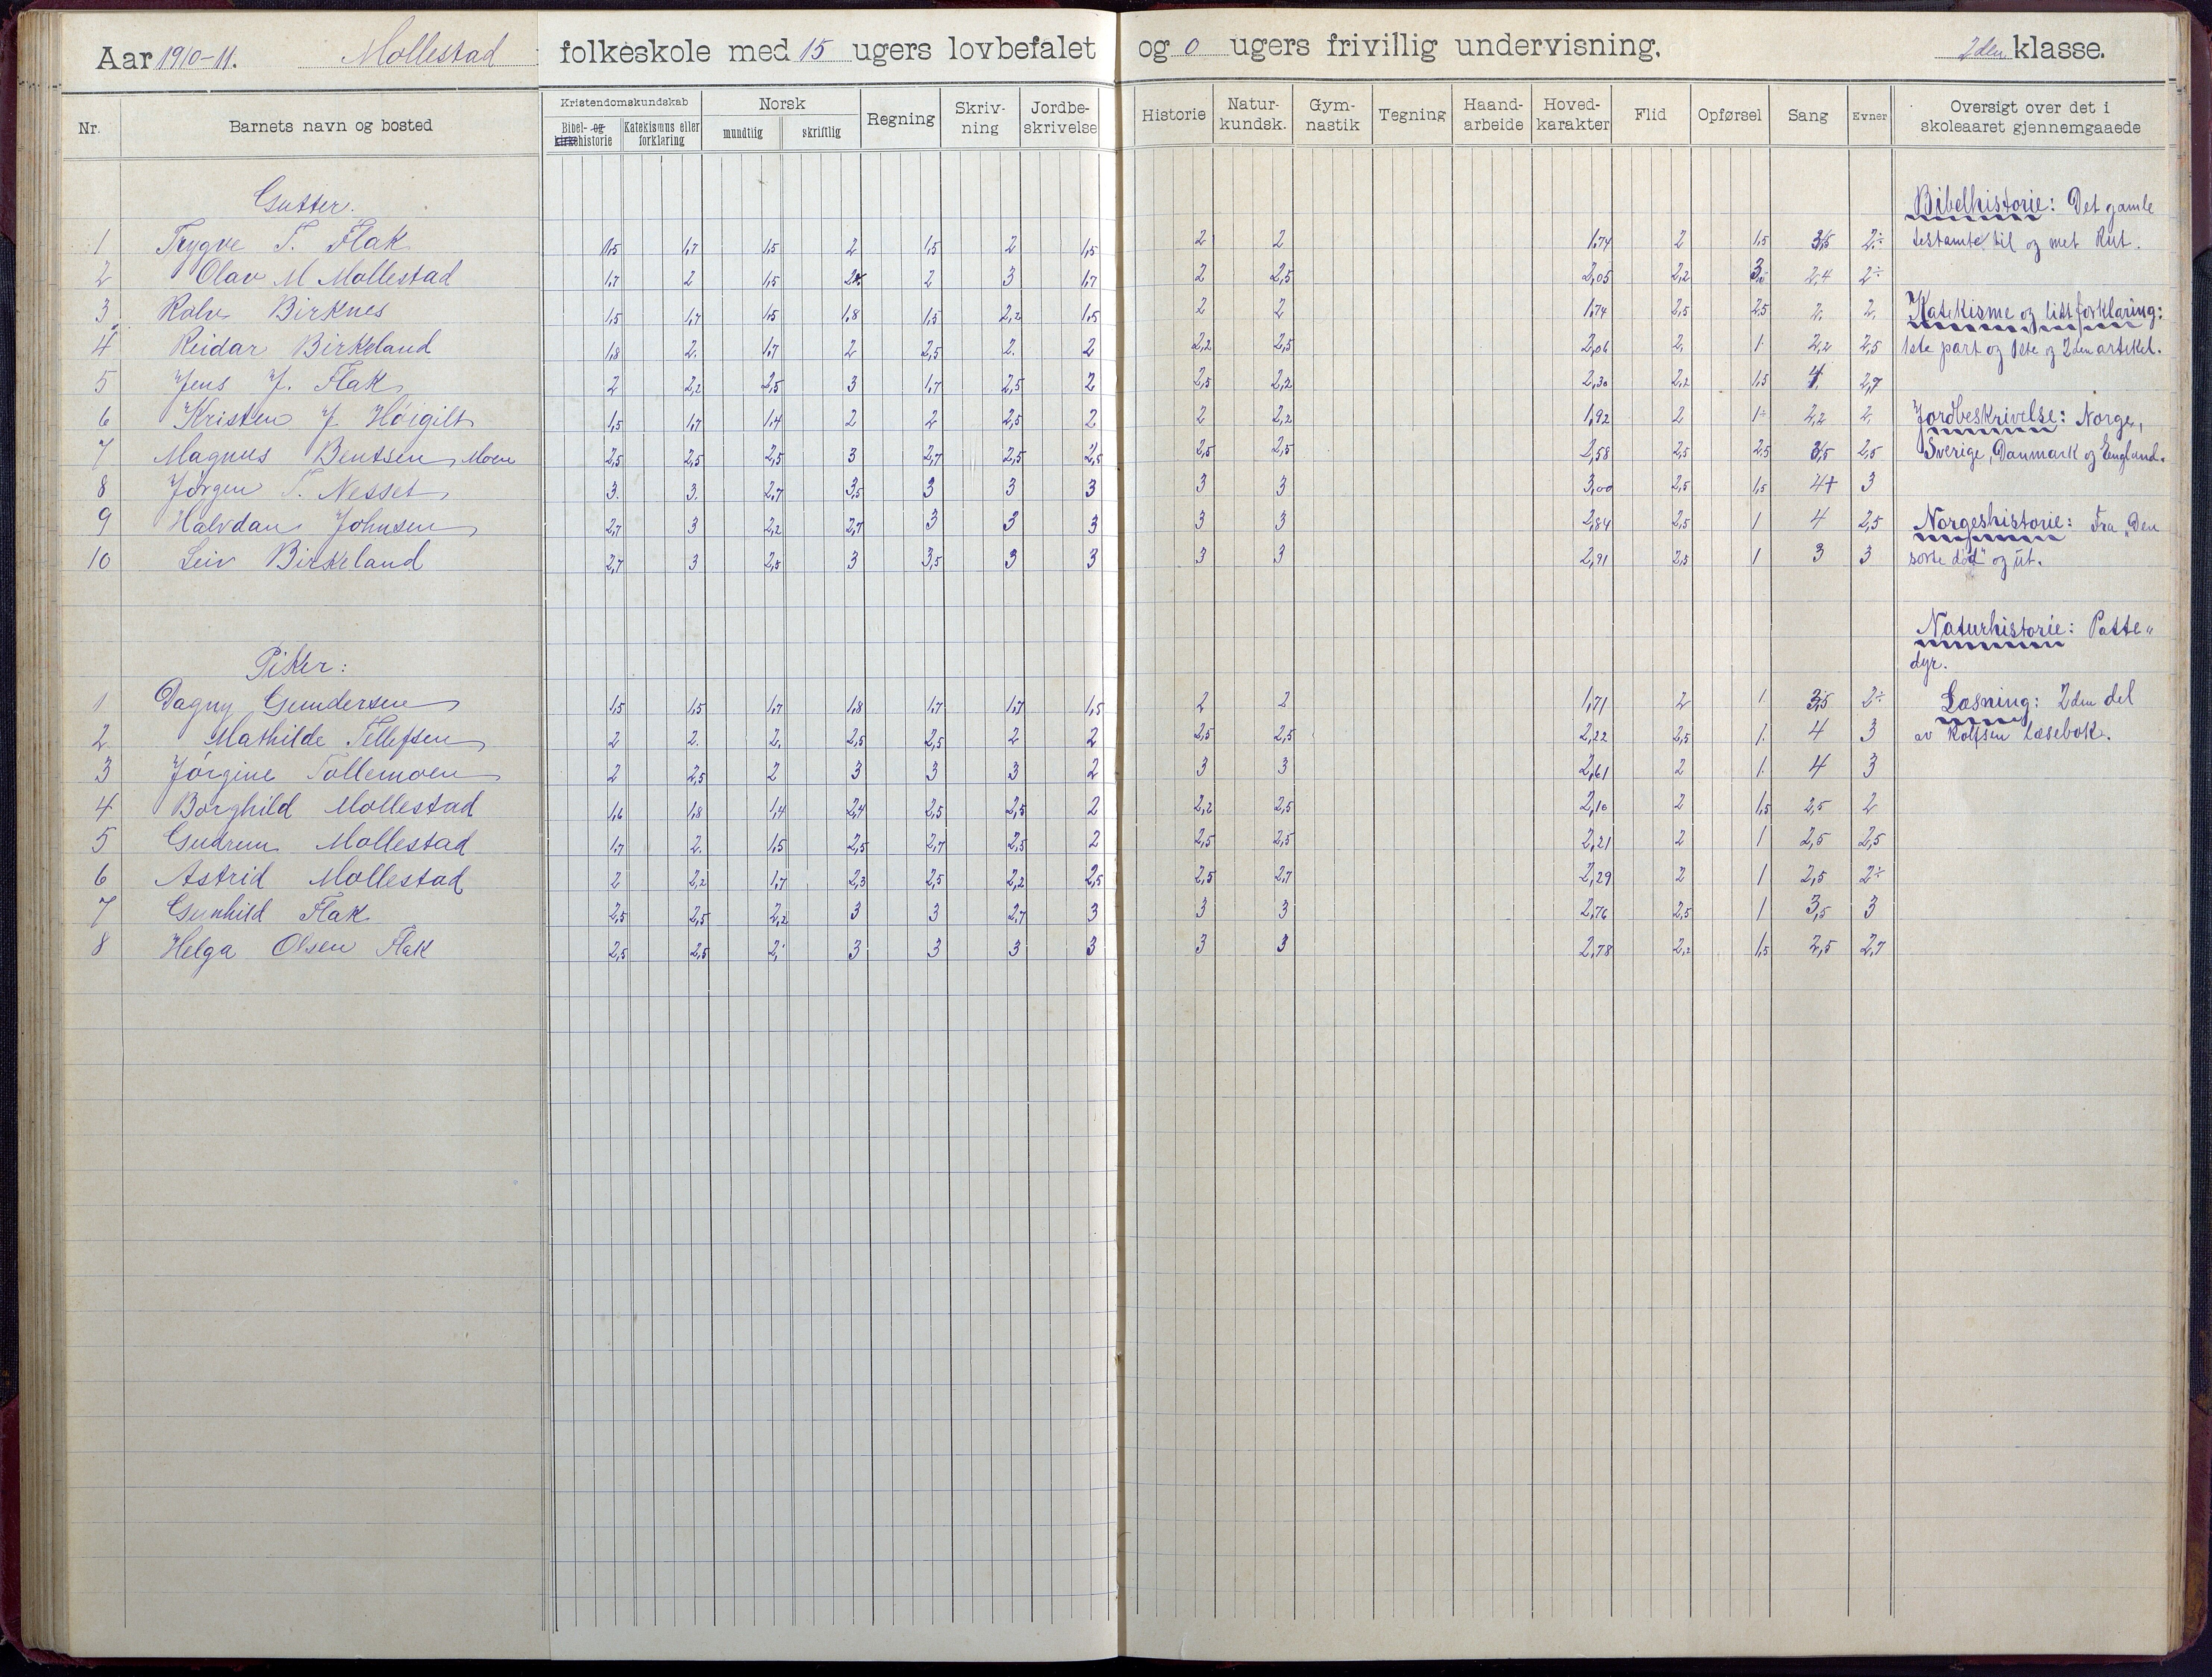 Aar 1910-11. Mollestad folkeskole med 15 ugers lovbefalet og 0 ugers frivillig undervisning. 2den klasse.
Nr. Barnets navn og bosted Kristendomskundskab Bibel- og kirkehistorie Katekismus eller forklaring Norsk mundtlig skriftlig Regning Skriv-ning Jordbe-skrivelse Historie Natur-kundsk. Gym-nastik Tegning Haand-arbeide Hoved-karakter Flid Opførsel Sang Evner Oversigt over det i skoleaaret gjennemgaaede
Gutter.
1 Trygve T. Flak 1,5 1,7 1,5 2 1,5 2 1,5 2 2 1,74 2 1,5 3,5 2÷
2 Olav M Mollestad 1,7 2 1,5 2 3 1,7 2 2,5 2,05 2,2 2,4 2÷
3 Rolv Birknes 1,5 1,7 1,5 1,8 1,5 2,2 1,5 2 2 1,74 2,5 2,5 2, 2,
4 Reidar Birkeland 1,8 2. 1,7 2 2,5 2. 2 2,2 2,5 2,06 2, 1 2,2 2,5
5 Jens J. Flak 2 2,2 2,5 3 1,7 2,5 2 2,5 2,2 2,30 2,2 1,5 4 2,7
6 Kristen J Høigilt 1,5 1,7 1,4 2 2 2,5 2 2 2,2 1,92 2 1÷ 2,2 2,
7 Magnus Bentsen, Moen 2,5 2,5 2,5 3 2,7 2,5 2,5 2,5 2,5 2,58 2,5 2,5 3,5 2,5
8 Jørgen T. Nesset 3. 3. 2,7 3,5 3 3 3 3 3 3,00 2,5 1,5 4+ 3
9 Halvdan Johnsen 2,7 3 2,2 2,7 3 3 3 3 3 2,84 2,5 1 4 2,5
10 Leiv Birkeland 2,7 3 2,5 3 3,5 3 3 3 3 2,91 2,5 1 3 3
Piker:
1 Dagny Gundersen 1,5 1,5 1,7 1,8 1,7 1,7 1,5 2 2 1,71 2 1. 3,5 2÷
2. Mathilde Tellefsen 2 2. 2, 2,5 2,5 2 2 2,5 2,5 2,22 2,5 1. 4 3
3 Jørgine Tollemoen 2 2,5 2 3 3 3 2 3 3 2,61 2 1. 4 3
4 Borghild Mollestad 1,6 1,8 1,4 2,4 2,5 2,5 2 2,2 2,5 2,10 2 1,5 2,5 2
5 Gudrun Mollestad 1,7 2. 1,5 2,5 2,7 2,5 2 2,5 2,5 2,21 2 1 2,5 2,5
6 Astrid Mollestad 2 2,2 1,7 2,3 2,5 2,2 2,5 2,5 2,7 2,29 2 1 2,5 2÷
7 Gunhild Flak 2,5 2,5 2,2 3 3 2,7 3 3 3 2,76 2,5 1 3,5 3
8 Helga Olsen Flak 2,5 2,5 2, 3 3 3 3 3 3 2,78 2,2 1,5 2,5 2,7
Bibelhistorie: Det gamle
testamte til og met Rut.
Katekisme og litt forklaring:
1ste part og 1ste og 2den artikel.
Jordbeskrivelse: Norge,
Sverige, Danmark og England.
Norgeshistorie: Fra „Den
sorte død" og ut.
Naturhistorie: Patte„
dyr.
Læsning: 2den del
av Rolfsen læsebok.